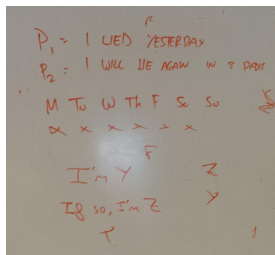 F
P₁ = I LIED YESTERDAY
P₂ = I WILL LIE AGAIN IN 3 DAYS
M Tu W Th F Sa Su
x x x x x x
F
I'm Y Z
If so, I'm Z Y
T